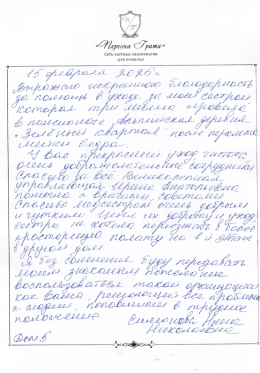 «Персона Грата»
Сеть частных пансионатов
для пожилых
15 февраля 2026 г
Выражаю искреннюю благодарность
за помощь в уходе за моей сестрой
которая три месяца провела
в пансионате Альпийская деревня
"Зелёный квартал" после перелома
шейки бедра.
У Вас прекрасный уход
очень доброжелательные сотрудники
Спасибо за всё Великолепная
управляющая Ирина Анатольевна
помогла с советами
Спасибо медсёстрам очень добрым
и чутким. на доброту и уход
сестра не хотела переезжать в более
просторную палату на 1й этаж
в другой дом.
Я без сомнения буду передавать
моим знакомым
воспользоваться такой организацией
как Ваша, решающей все проблемы
с людьми, попавшими в трудное
положение
Нина
Николаевна